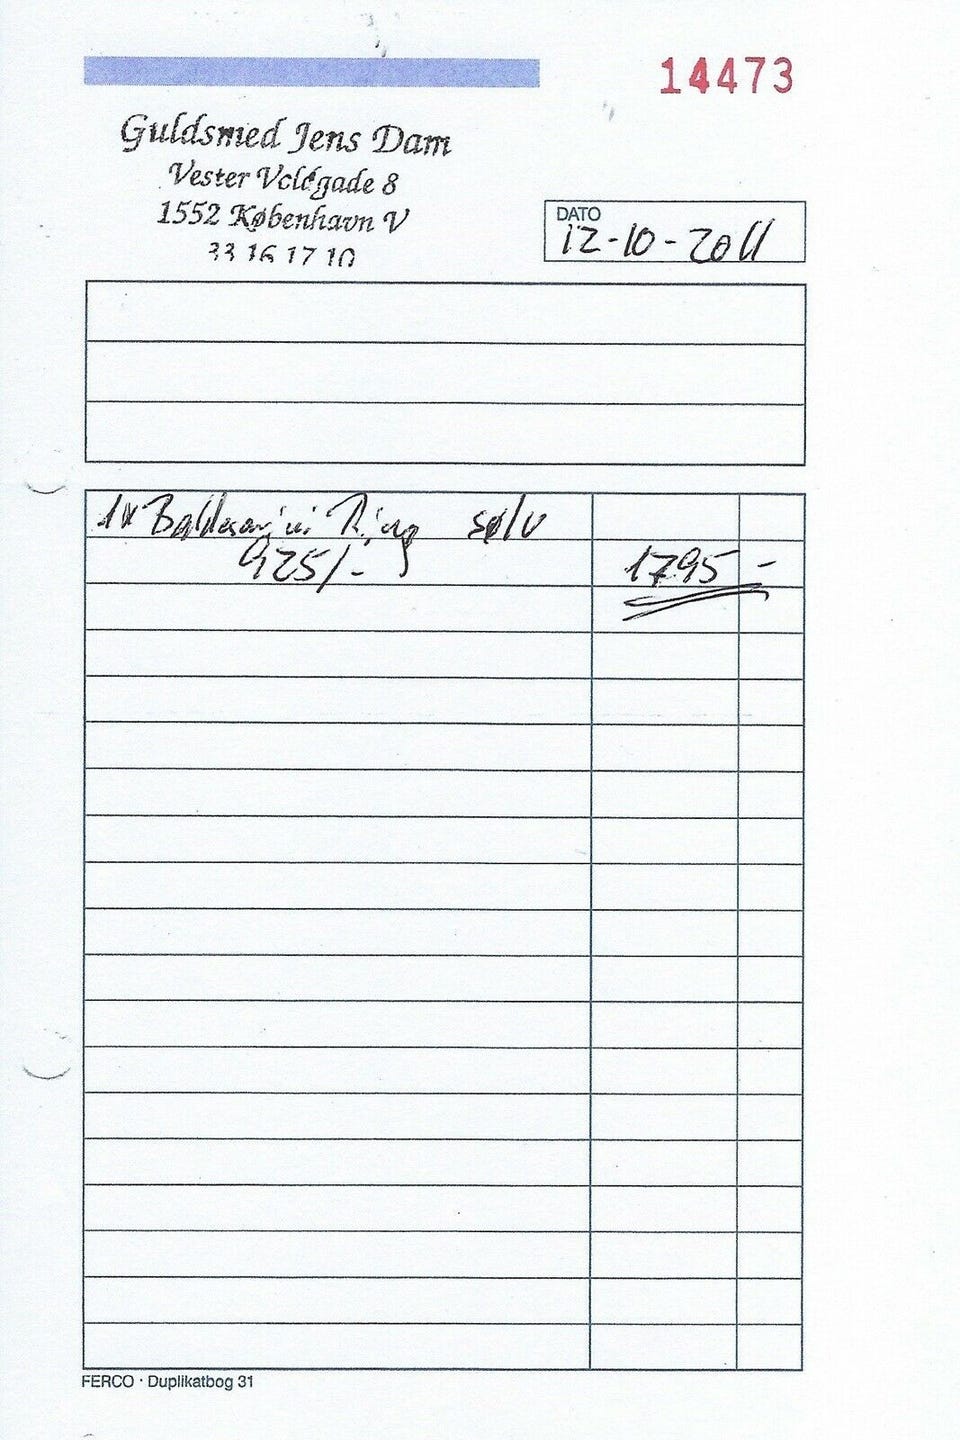 14473
Guldsmed Jens Dam
Vester Voldgade 8
1552 København V
33 16 17 10
DATO
12-10-2011
1x Baldessarini Ring sølv
925/- 1795 -
FERCO · Duplikatbog 31